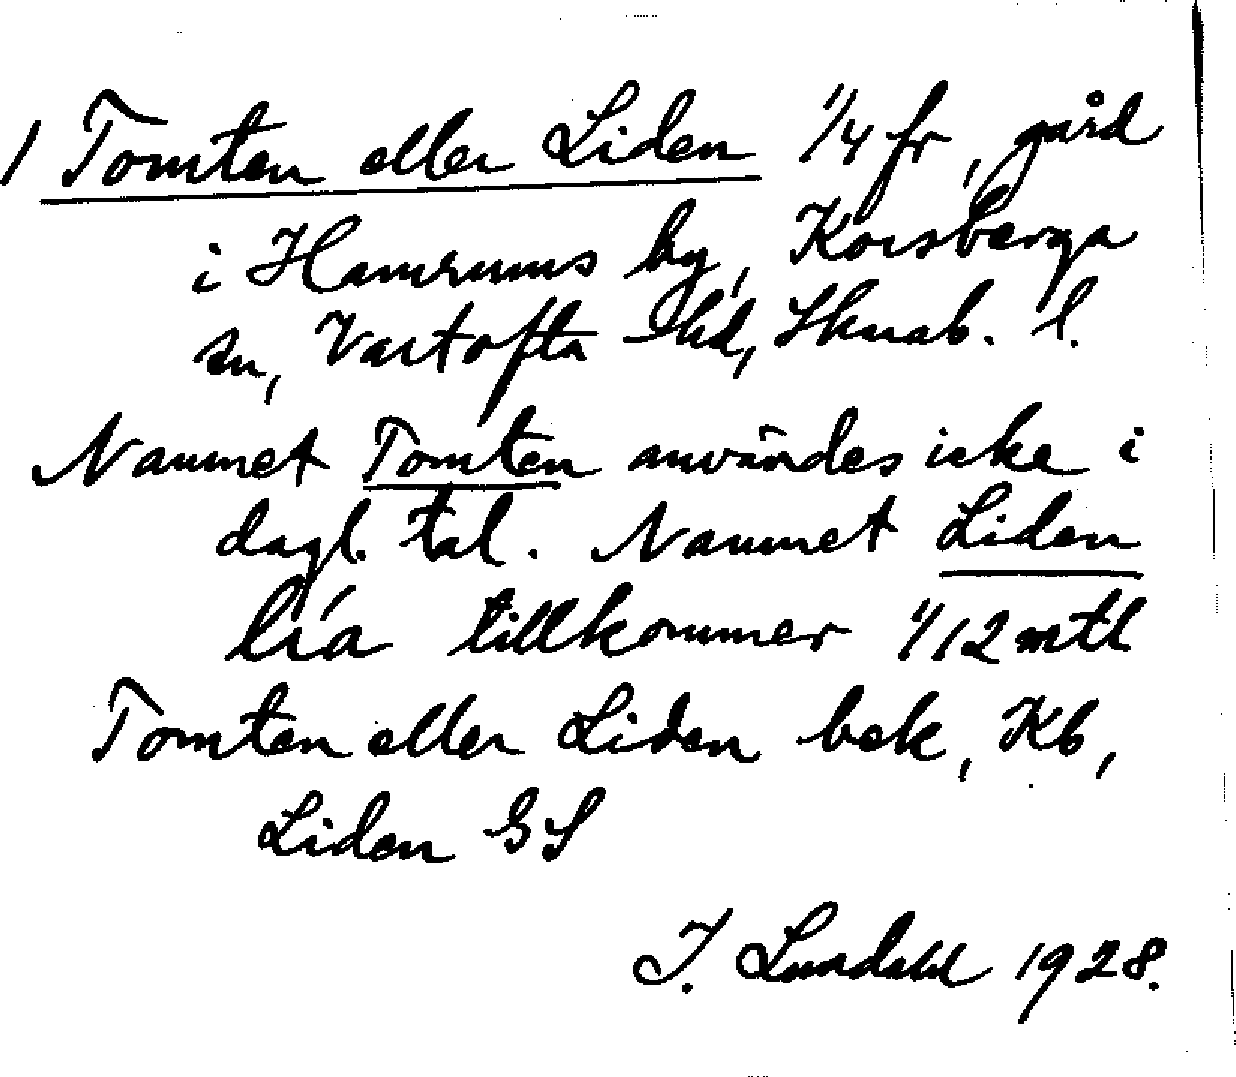 1 Tomten eller Liden 1/4 fr, gård
i Hamrums by, Korsberga
sn, Vartofta hd, Skarab. l.
Namnet Tomten användes icke i
dagl. tal. Namnet Liden
lía tillkommer 1/12 mtl
Tomten eller Liden bek, Kb,
Liden GS
I. Lundahl 1928.